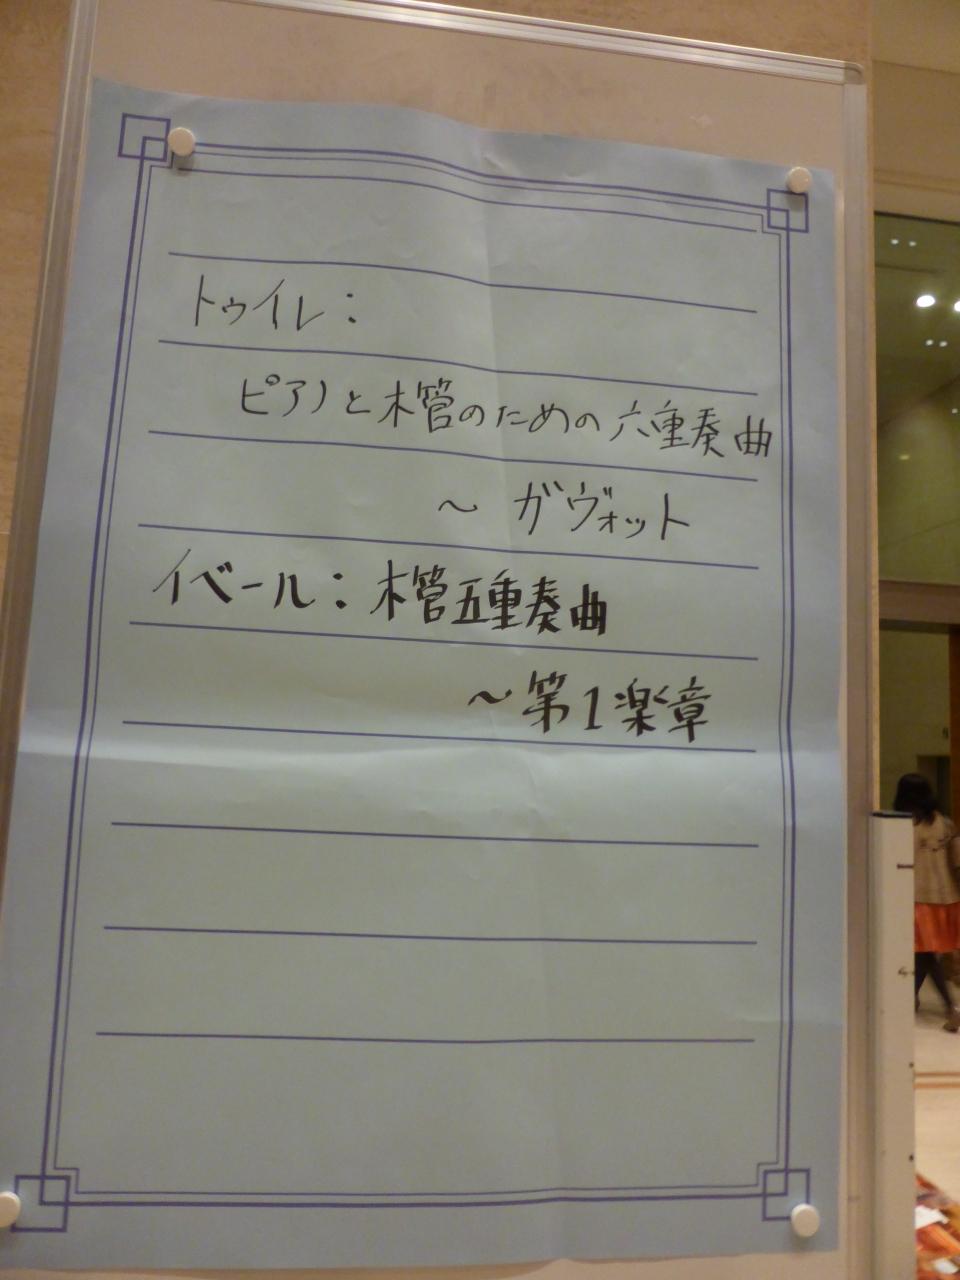 トゥイレ：
ピアノと木管のための六重奏曲
～ ガヴォット
イベール：木管五重奏曲
～第1楽章